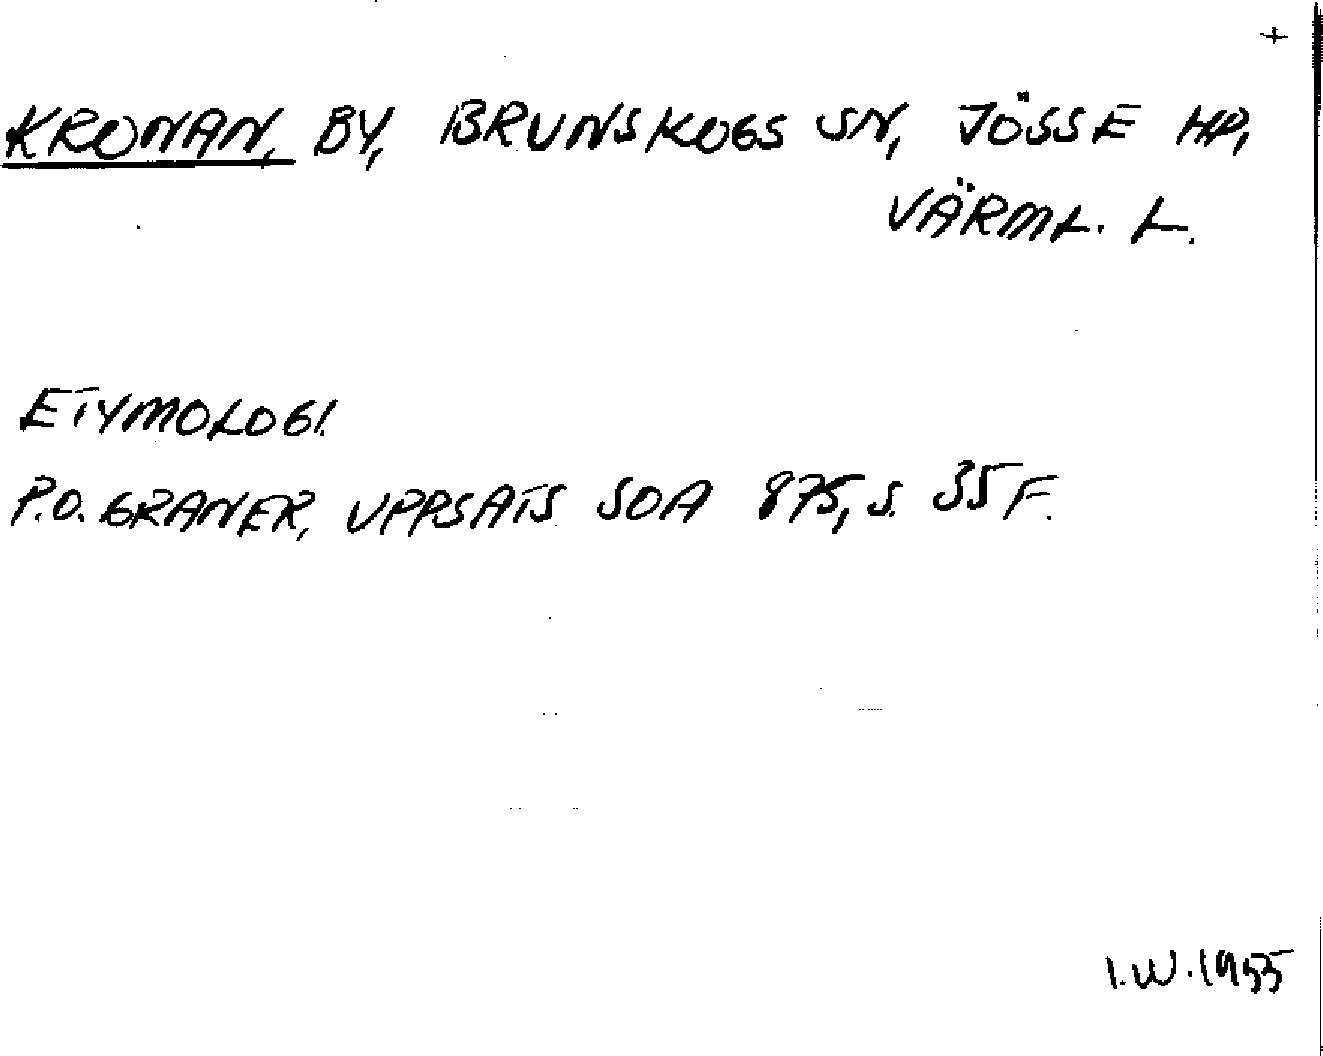 +
KRONAN, BY, BRUNSKOGS SN, JÖSSE HD,
VÄRML. L.
ETYMOLOGI.
P.O. GRANER, UPPSATS SOA 875, S. 35 F.
I.W. 1955